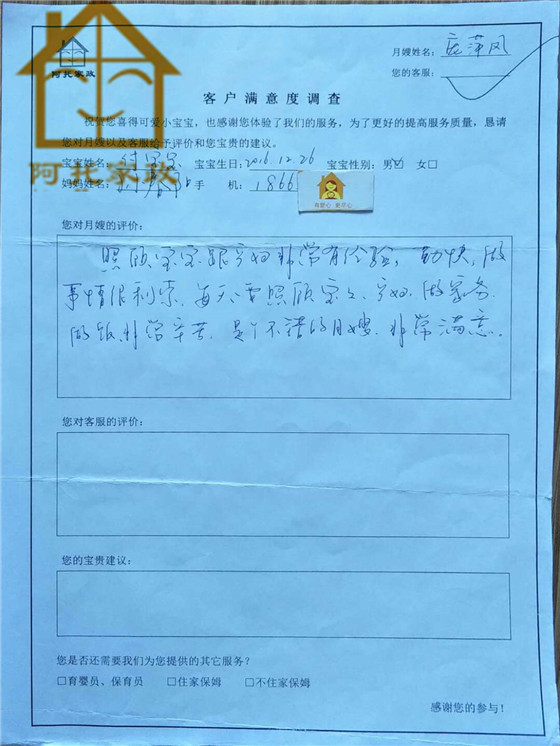 阿托家政
月嫂姓名：庞萍凤
您的客服：
客户满意度调查
祝贺您喜得可爱小宝宝，也感谢您体验了我们的服务，为了更好的提高服务质量，恳请
您对月嫂以及客服给予评价和您宝贵的建议。
宝宝姓名：付宝宝 宝宝生日：2016.12.26 宝宝性别：男☑ 女□
妈妈姓名： 手 机：1866
有爱心 更尽心
阿托家政
您对月嫂的评价：
照顾宝宝跟产妇非常有经验，勤快，做
事情很利索，每天要照顾宝宝、产妇、做家务、
做饭，非常辛苦，是个不错的月嫂，非常满意。
您对客服的评价：
您的宝贵建议：
您是否还需要我们为您提供的其它服务？
□育婴员、保育员 □住家保姆 □不住家保姆
感谢您的参与！